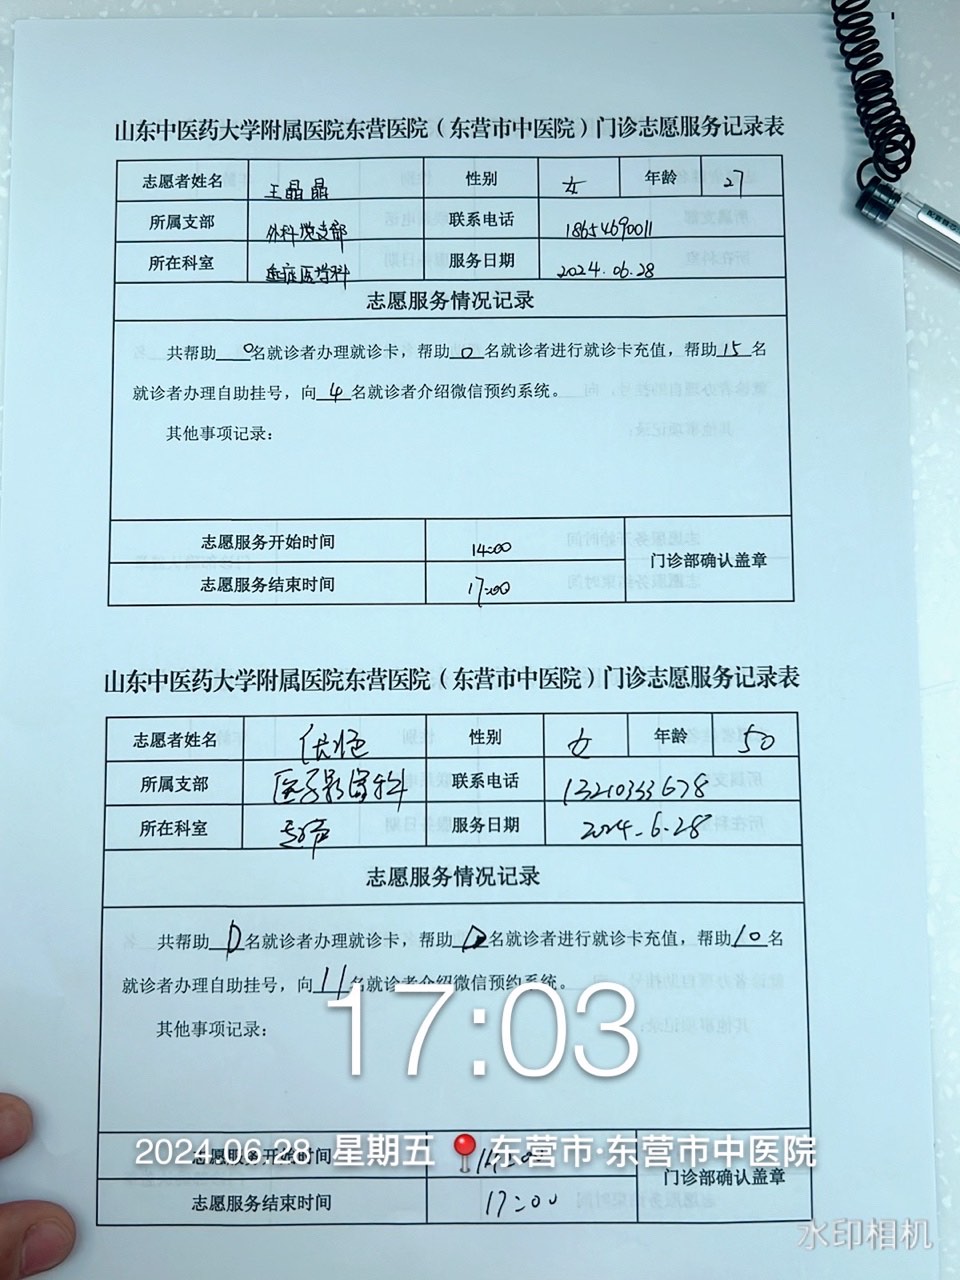 山东中医药大学附属医院东营医院（东营市中医院）门诊志愿服务记录表
志愿者姓名 王晶晶 性别 女 年龄 27
所属支部 外科党支部 联系电话 18654690011
所在科室 重症医学科 服务日期 2024.06.28
志愿服务情况记录
共帮助0名就诊者办理就诊卡，帮助0名就诊者进行就诊卡充值，帮助15名
就诊者办理自助挂号，向4名就诊者介绍微信预约系统。
其他事项记录：
志愿服务开始时间 14:00
志愿服务结束时间 17:00
门诊部确认盖章
山东中医药大学附属医院东营医院（东营市中医院）门诊志愿服务记录表
志愿者姓名 性别 女 年龄 50
所属支部 医学影像科 联系电话 13210333678
所在科室 服务日期 2024.6.28
志愿服务情况记录
共帮助0名就诊者办理就诊卡，帮助0名就诊者进行就诊卡充值，帮助10名
就诊者办理自助挂号，向11名就诊者介绍微信预约系统。
其他事项记录：
17:03
2024.06.28 星期五 东营市·东营市中医院
志愿服务开始时间
志愿服务结束时间 17:00
门诊部确认盖章
水印相机